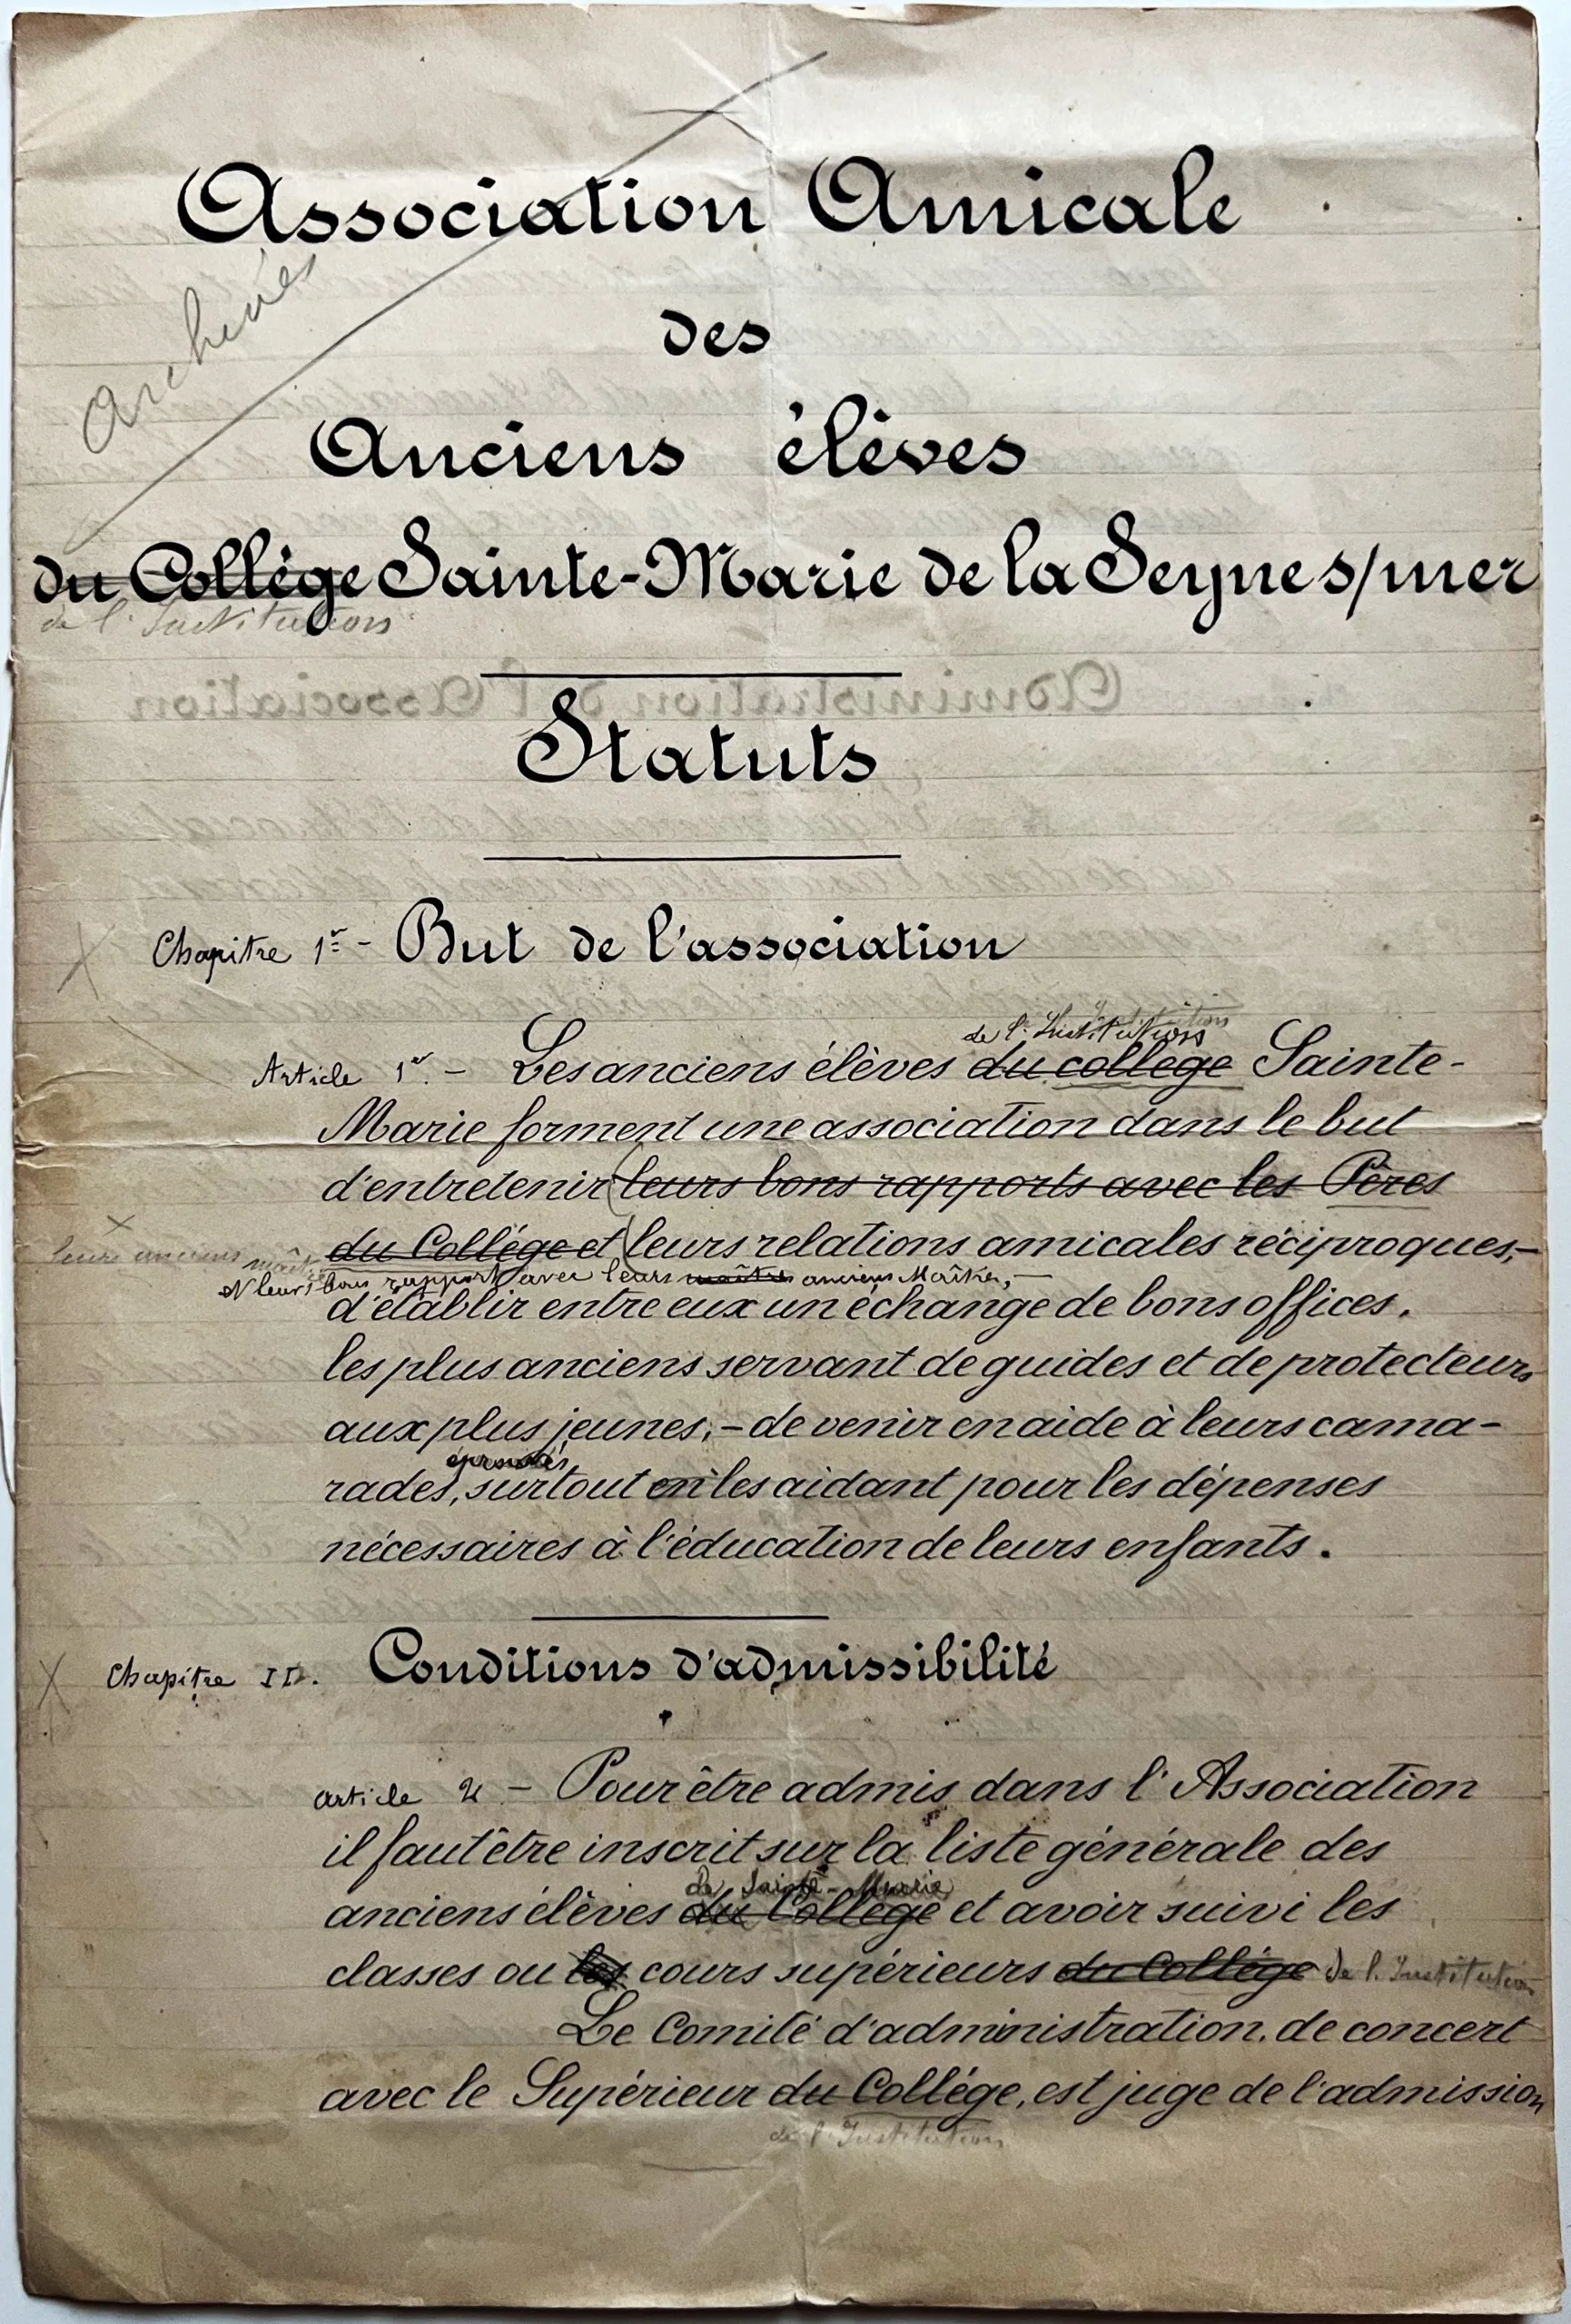 Association Amicale
Archives
des
Anciens élèves
du Collège Sainte-Marie de la Seyne s/mer
de l'Institution
Statuts
Chapitre 1er - But de l'association
de l'Institution
Article 1er. - Les anciens élèves du collège Sainte-
Marie forment une association dans le but
d'entretenir (leurs bons rapports avec les Pères
du Collége et) leurs relations amicales réciproques,-
leurs anciens maîtres
et leurs bons rapport avec leurs maîtres anciens Maîtres,-
d'établir entre eux un échange de bons offices,
les plus anciens servant de guides et de protecteurs
aux plus jeunes;- de venir en aide à leurs cama-
éprouvés
rades, surtout en les aidant pour les dépenses
nécessaires à l'éducation de leurs enfants.
Chapitre II. Conditions d'admissibilité
article 2 - Pour être admis dans l'Association
il faut être inscrit sur la liste générale des
de Sainte-Marie
anciens élèves du Collège et avoir suivi les
classes ou les cours supérieurs du Collége de l'Institution
Le Comité d'administration, de concert
avec le Supérieur du Collége, est juge de l'admission
de l'Institution